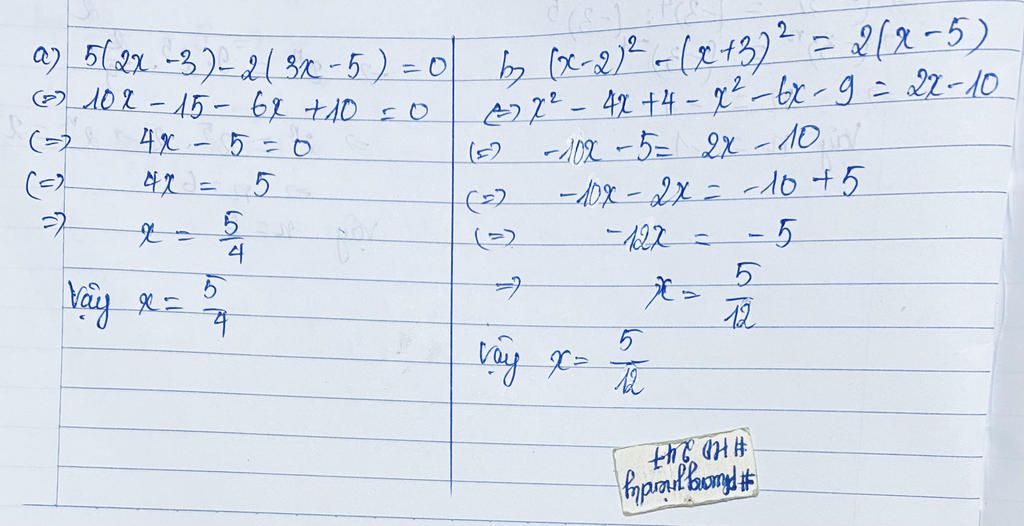 a) 5(2x - 3) - 2(3x - 5) = 0
(=) 10x - 15 - 6x + 10 = 0
(=) 4x - 5 = 0
(=) 4x = 5
=) x = 5/4
Vậy x = 5/4
b, (x-2)² - (x+3)² = 2(x-5)
(=) x² - 4x + 4 - x² - 6x - 9 = 2x - 10
(=) -10x - 5 = 2x - 10
(=) -10x - 2x = -10 + 5
(=) -12x = -5
=) x = 5/12
Vậy x = 5/12
#phuongfriendly
#HD 247